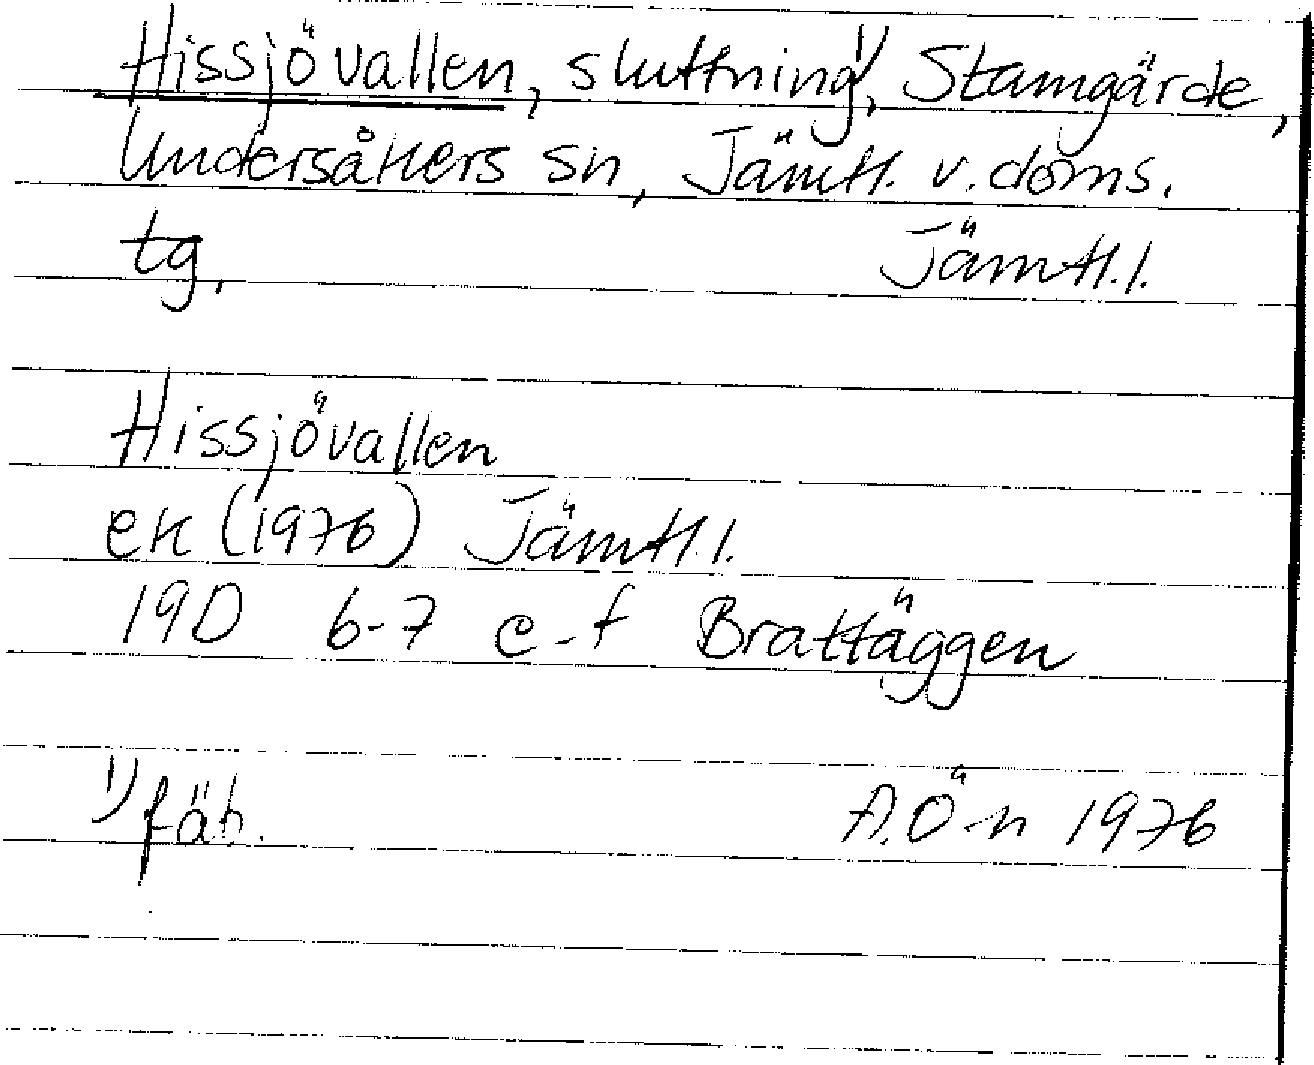 Hissjövallen, sluttning¹⁾, Stamgärde,
Undersåkers sn, Jämtl. v. doms.
tg, Jämtl. l.
Hissjövallen
ek (1976) Jämtl. l.
19D 6-7 e-f Brattäggen
¹⁾ fäb. A.Ö-n 1976